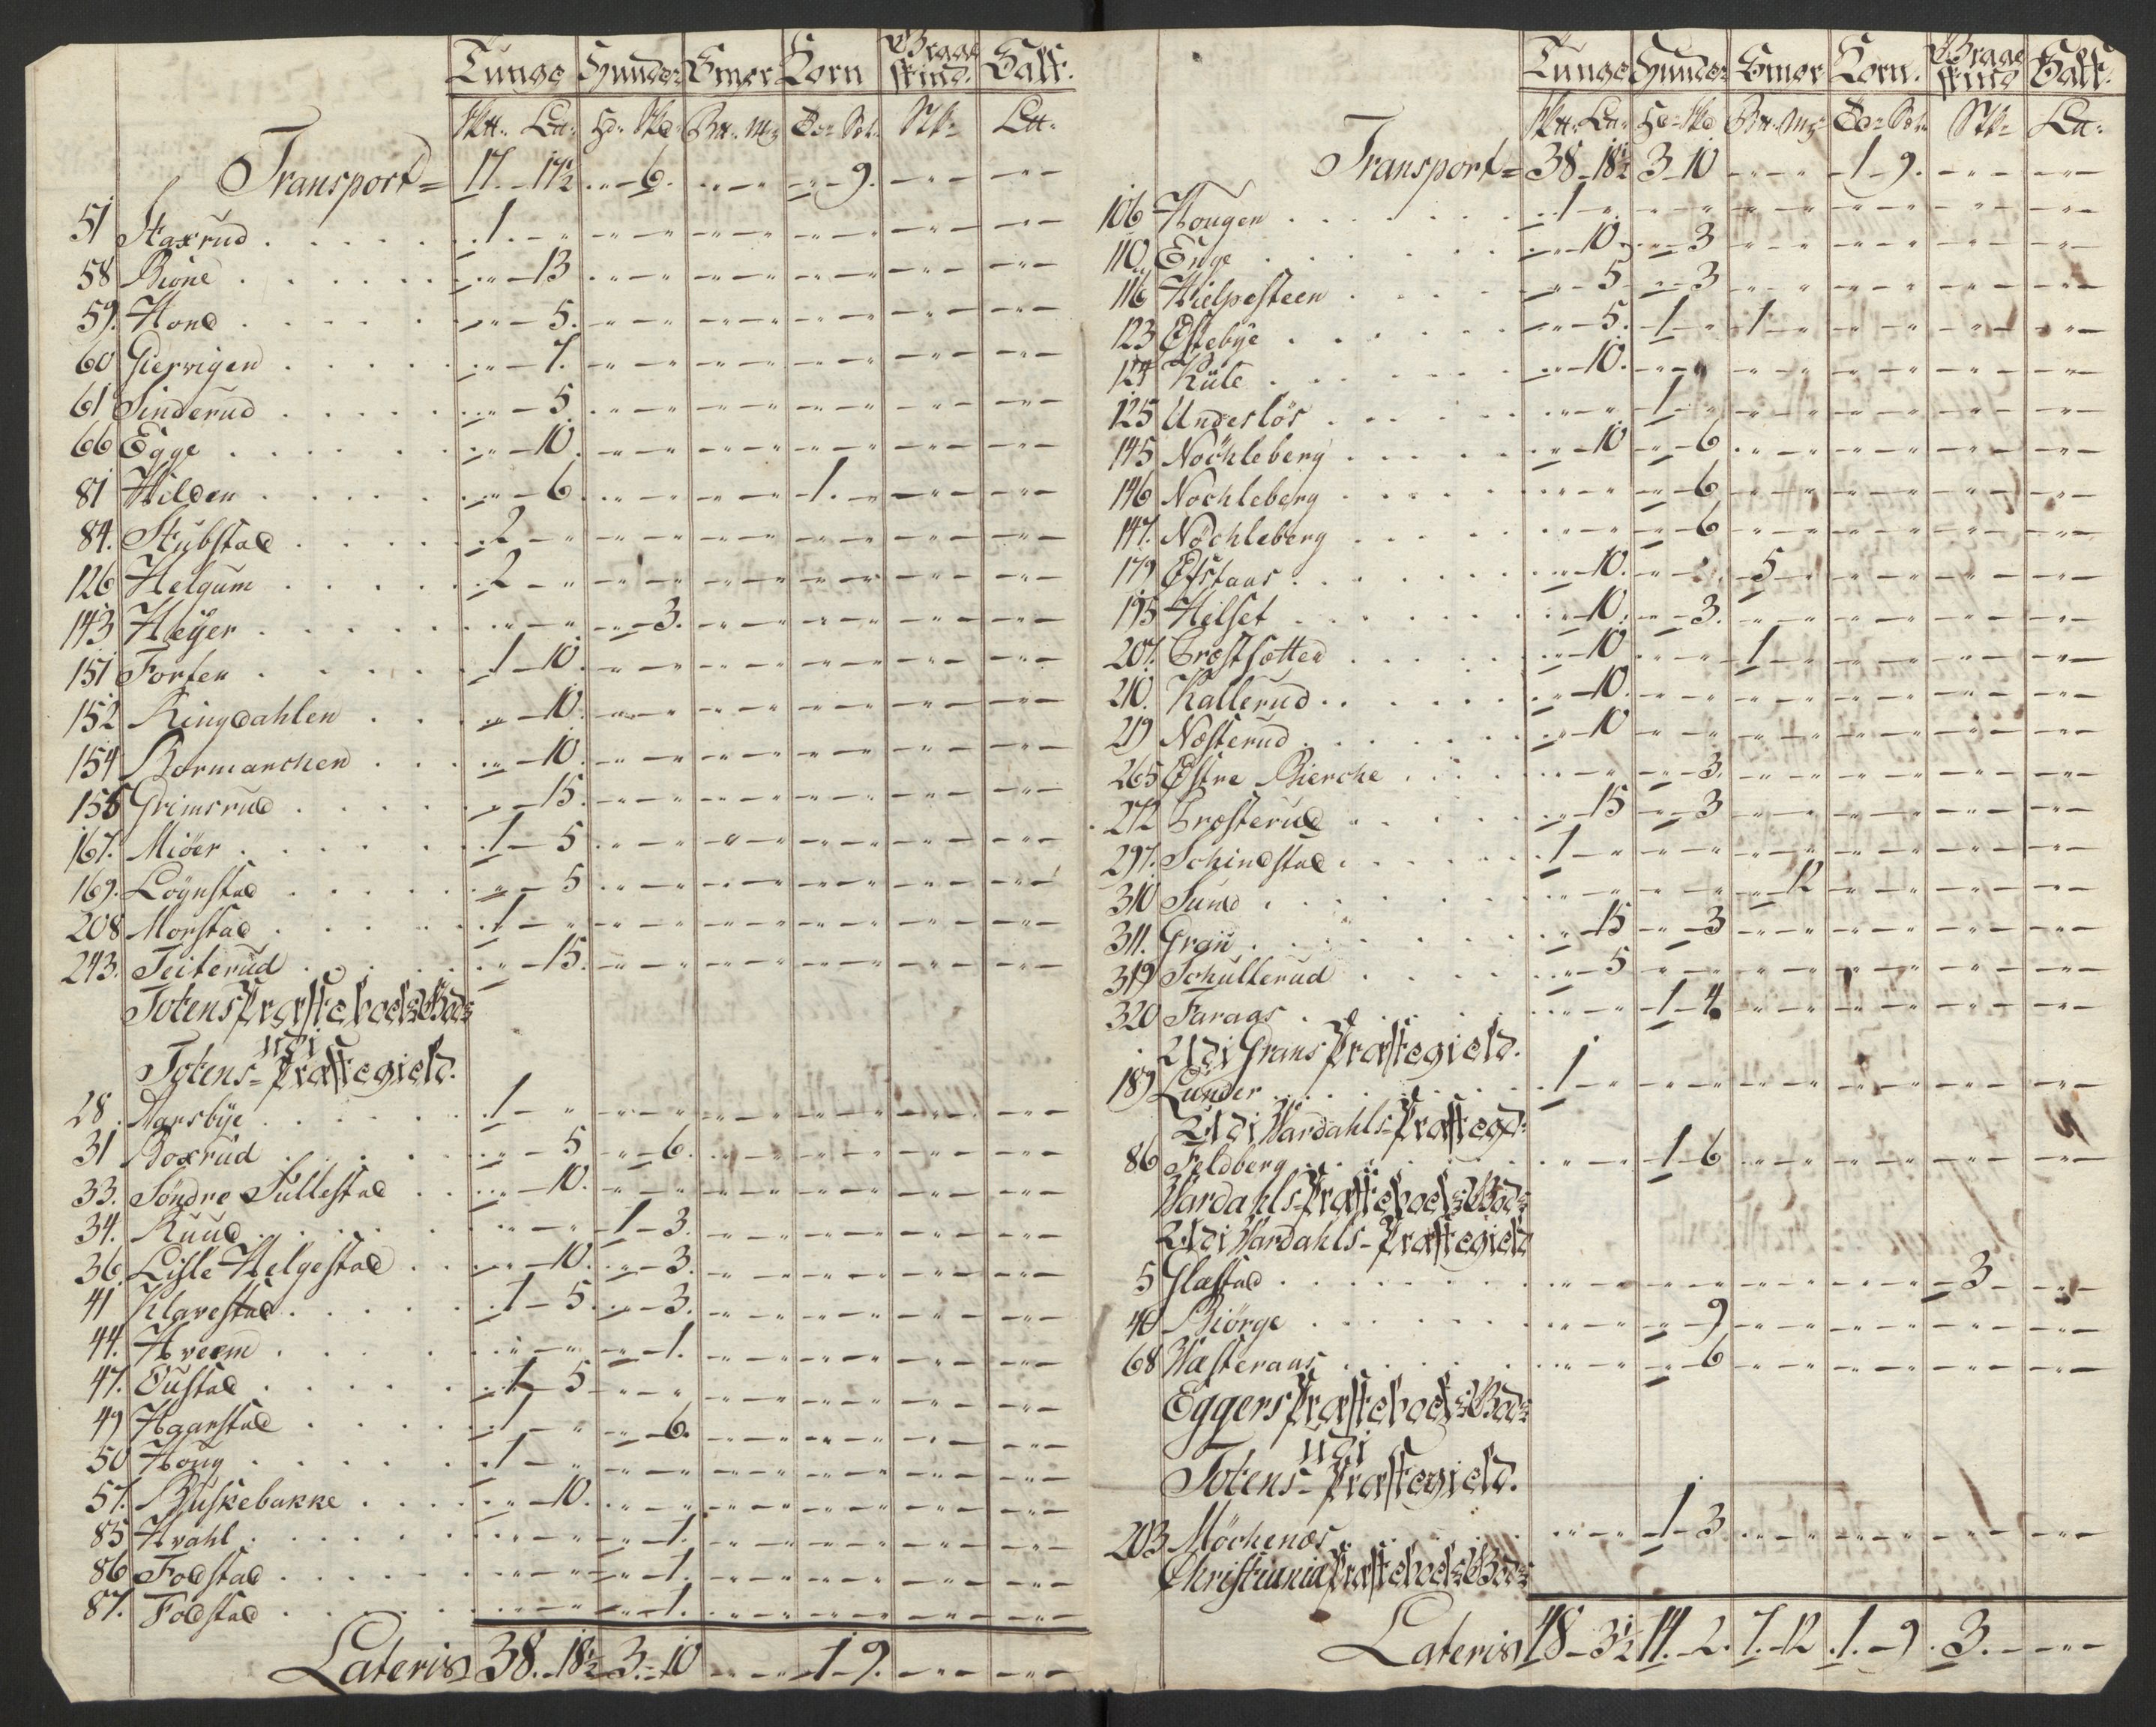 Tunge Hunder Smør Korn Bragg skind. Salt.
Skt: Lit: Hd: Skd: Btt: Mk: Td: Set: Stk: Lit:
Transport = 17. - 17½ " - 6. " - " " - 9. - " - - " -
51 Staxrud . . . . 1. - "
58 Bione . . . . " - 13
59. Hond . . . . " - 5.
60 Giervigen . . . . " - 7.
61 Sinderud . . . . " - 5
66 Egge . . . . " - 10.
81 Hilden . . . . " - 6 " - " " - " 1. - "
84. Stubstad . . . . 2 - "
126 Helgum . . . . 2 - "
143 Heyer . . . . " - " " - 3.
151 Forsen . . . . 1 - 10.
152 Ringdahlen . . . " - 10.
154 Bormarchen . . . " - 10.
155 Grimsrud . . . . " - 15.
167. Miöer . . . . 1 - 5
169. Löynstad . . . . " - 5
208 Morstad . . . . 1 - "
243. Teiterud . . . . " - 15.
Totens Præsteboels Godz
udi
Totens - Præstegield.
28. Aarsbye . . . . 1 - "
31 Boxrud . . . . " - 5 " - 6.
33. Söndre Sullestad . . " - 10.
34. Ruud . . . . " - " 1 - 3.
36. Lisle Helgestad . . " - 10. " - 3.
41 Klavestad . . . . 1 - 5. " - 3.
44. Hveem . . . . " - " " - 1.
47. Dustad . . . . 1 - 5
49 Haarstad . . . . 1 - " " - 6.
50 Houg . . . . 1 - "
57. Buskebakke . . . . " - 10.
85 Hvahl . . . . " - " " - 1.
86 Fodstad . . . . " - " " - 1.
87. Fodstad . . . . " - " " - 1.
Lateris 38. - 18½ 3. - 10 " - " 1 - 9. - " - - " -
Tunge Hunder Smør Korn. Bragg skind Salt.
Skt: Lit: Hd: Skd Btt: Mk: Td: Set: Stk: Lit:
Transport = 38 - 18½ 3 - 10 " - " 1 - 9. - " - - " -
106 Hougen . . . . 1 - "
110. Enge . . . . " - 10 " - 3
116 Hielpesteen . . . . " - 5 " - 3
123 Östebye . . . . " - 5. 1 - " 1 - "
124 Kute . . . . " - 10.
125 Undeslös . . . . " - " 1 - "
145 Nöchleberg . . . . " - 10 " - 6
146 Nochleberg . . . . " - " " - 6
147. Nöchleberg . . . . " - " " - 6
179 Efstaas . . . . " - 10. " - " 5 - "
195 Hilset . . . . " - 10. " - 3.
207. Trostsotten . . . . " - 10 " - " 1 - "
210. Kallerud . . . . " - 10.
219 Nösterud . . . . " - 10
265 Östre Bierche . . . " - " " - 3.
272 Trosterud . . . . " - 15 " - 3
297. Schindstad . . . . 1 - "
310 Sund . . . . " - " " - " " - 12
311. Gran . . . . " - 15 " - 3
319 Schulterud . . . . " - 5
320 Faraas . . . . " - " 1 - 4
Udi Grans Præstegield.
189 Lunder . . . . 1 - "
Udi Wardahls - Præstegd:
86 Feldberg . . . . " - " 1 - 6
Wardahls - Præsteboels Godz
Udi Wardahls - Præstegield
5 Glæstad . . . . " - " " - " " - " " - " 3
40 Biörge . . . . " - " " - 9
68 Wæsteraas . . . . " - " " - 6
Eggers Præsteboels Godz
udi
Totens - Præstegield.
203 Möchenæs . . . . " - " 1 - 3
Christiania Præsteboels Godz
Lateris 48 - 3½ 14. - 2. 7. - 12 1. - 9. 3. - - " -